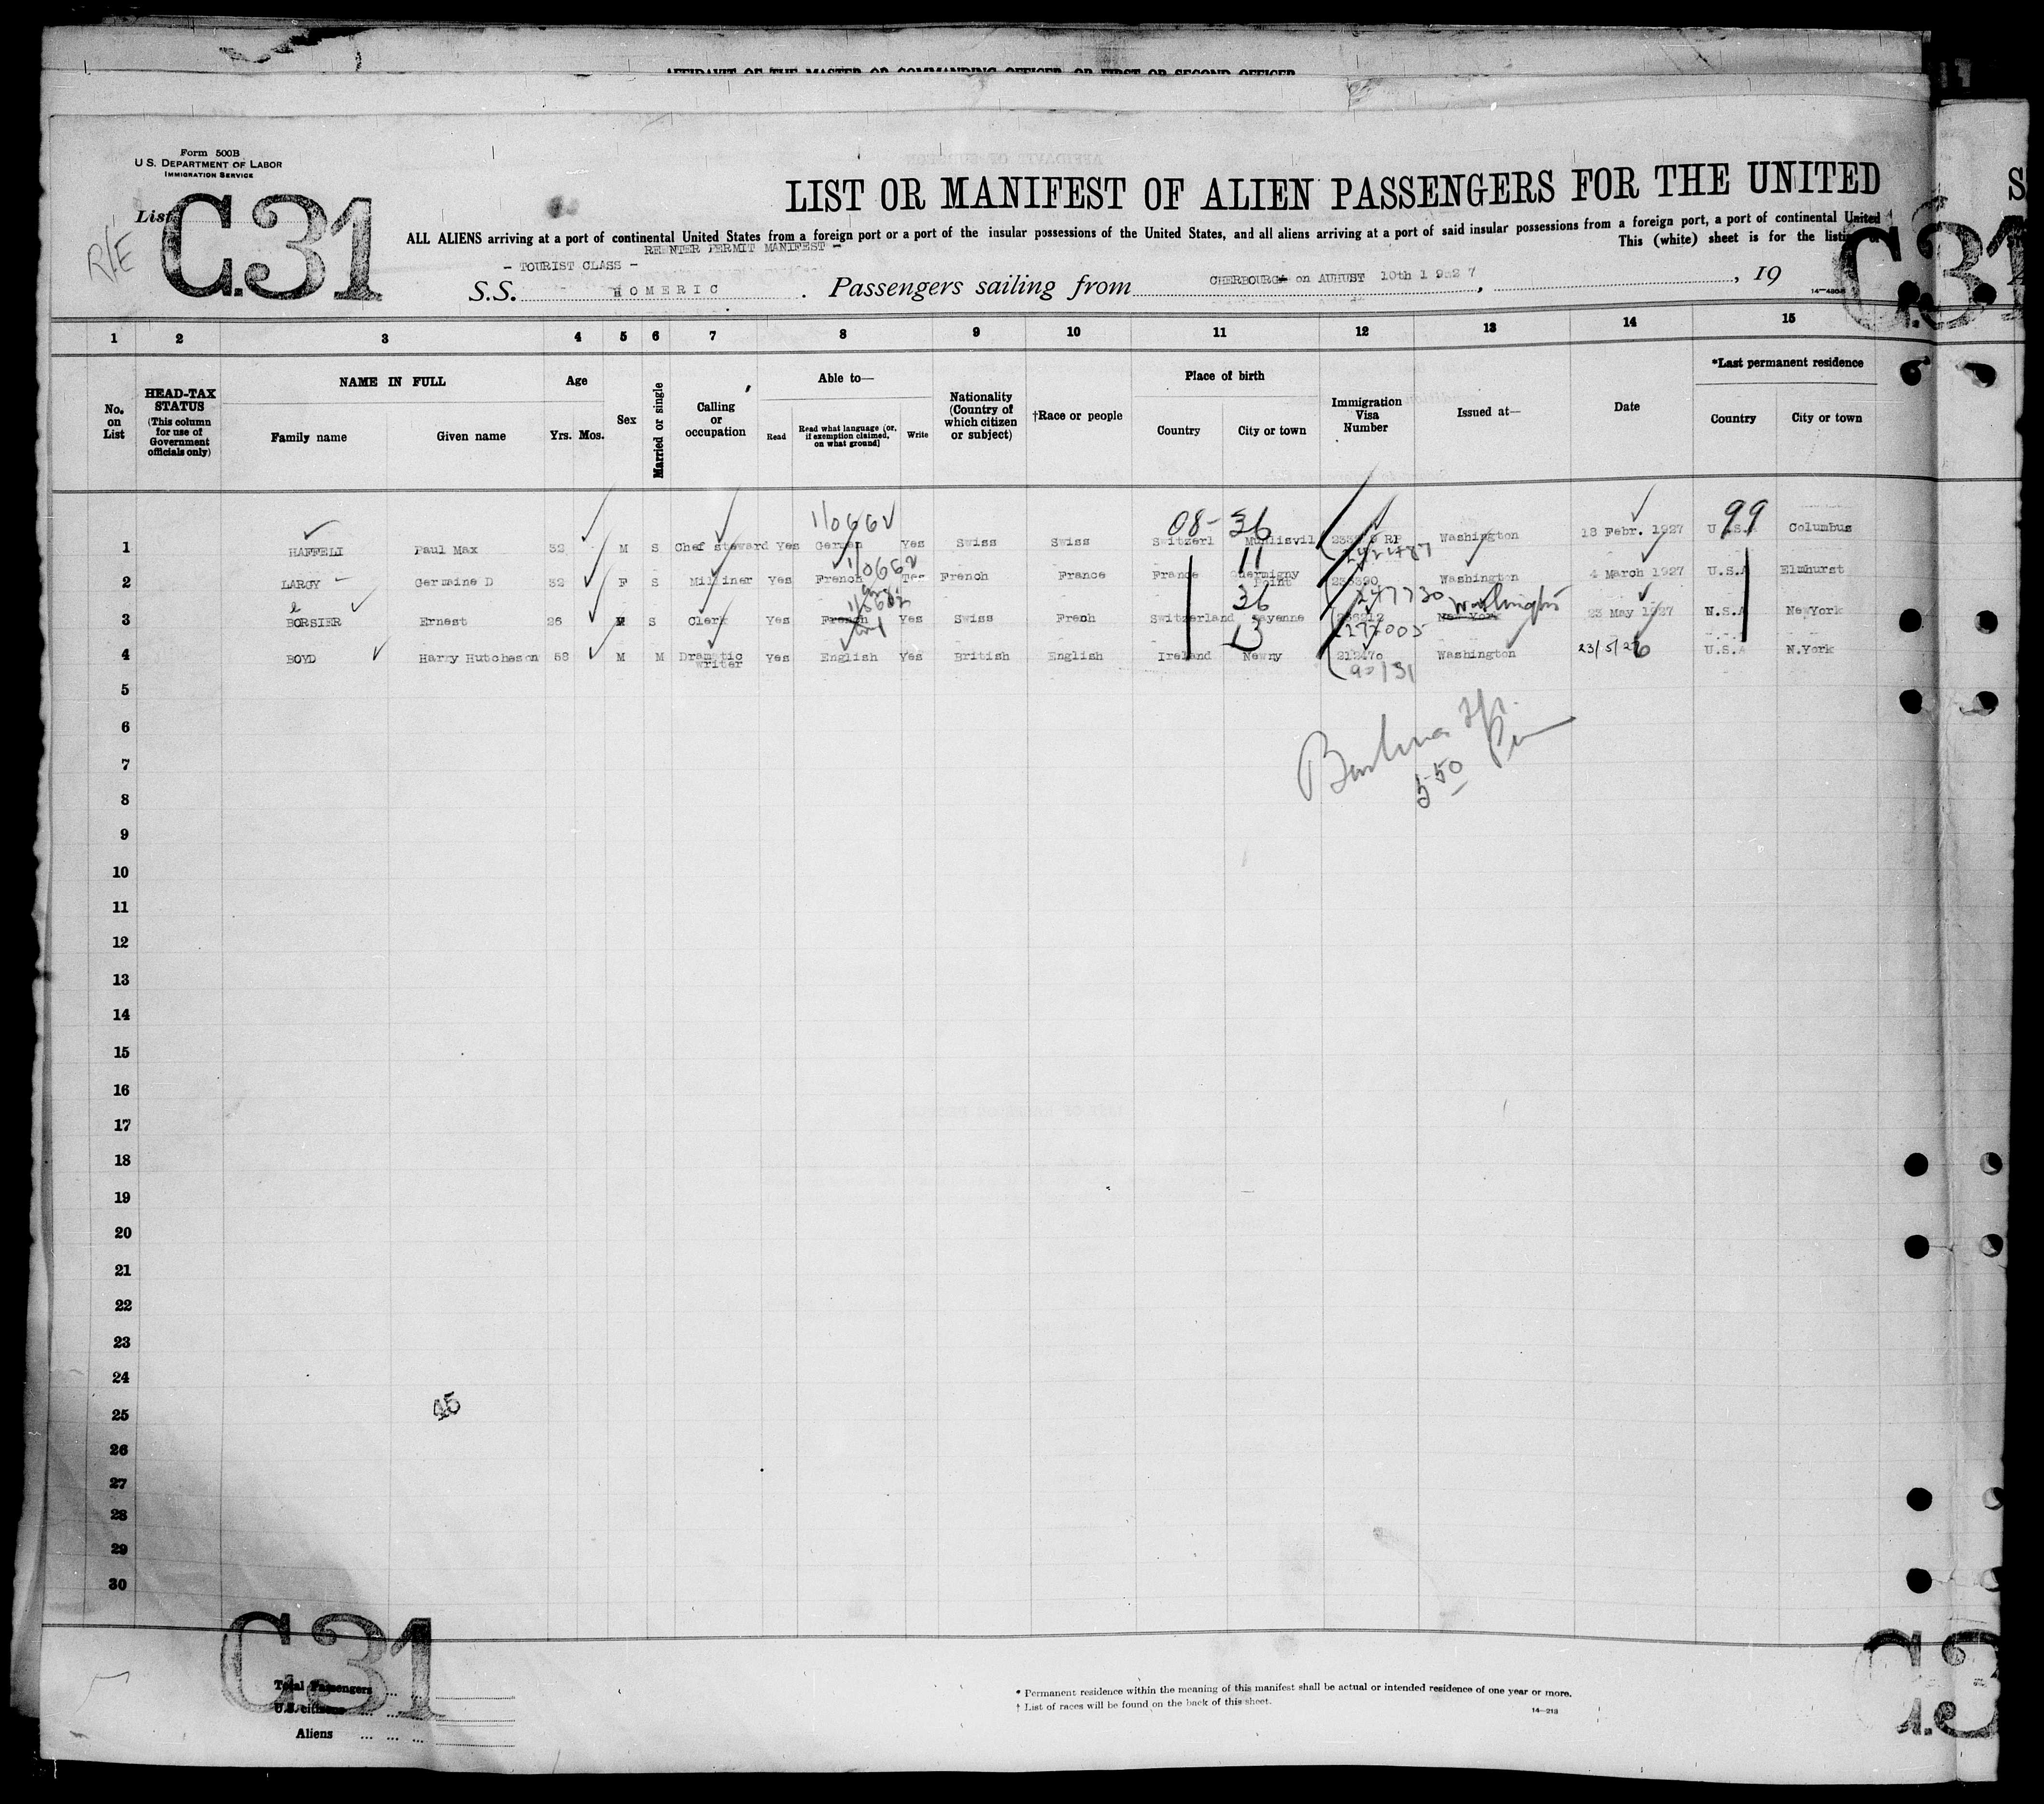 AFFIDAVIT OF THE MASTER OR COMMANDING OFFICER OR FIRST OR SECOND OFFICER
Form 500B
U. S. DEPARTMENT OF LABOR
IMMIGRATION SERVICE
List
C.31
R/E
LIST OR MANIFEST OF ALIEN PASSENGERS FOR THE UNITED
ALL ALIENS arriving at a port of continental United States from a foreign port or a port of the insular possessions of the United States, and all aliens arriving at a port of said insular possessions from a foreign port, a port of continental United
This (white) sheet is for the listing of
REENTER PERMIT MANIFEST -
- TOURIST CLASS -
S.S. HOMERIC. Passengers sailing from CHERBOURG on AUHUST 10th 1927, , 19
14-480-B
C.31
1 2 3 4 5 6 7 8 9 10 11 12 13 14 15
No. on List
HEAD-TAX STATUS (This column for use of Government officials only)
NAME IN FULL
Family name Given name
Age
Yrs. Mos.
Sex
Married or single
Calling or occupation
Able to—
Read
Read what language (or, if exemption claimed, on what ground)
Write
Nationality (Country of which citizen or subject)
†Race or people
Place of birth
Country City or town
Immigration Visa Number
Issued at—
Date
*Last permanent residence
Country City or town
08- 36 99
1 HAFFELI Paul Max 32 M S Chef steward Yes German Yes Swiss Swiss Switzerl Washington 18 Febr. 1927 U.S.A Columbus
11
2 LARGY Germaine D 32 F S Milliner Yes French Yes French France France Washington 4 March 1927 U.S.A Elmhurst
36 247730 Washington
3 BORSIER Ernest 26 M S Clerk Yes French Yes Swiss French Switzerland New York 23 May 1927 N.S.A New York
13 277005
4 BOYD Harry Hutcheson 58 M M Dramatic writer Yes English Yes British English Ireland Newry Washington 23/5/26 U.S.A N.York
90131
5
6
7
5 50
8
9
10
11
12
13
14
15
16
17
18
19
20
21
22
23
24
45
25
26
27
28
29
30
C.31
Total Passengers ... ...
U.S. citizens ... ...
Aliens ... ... ...
* Permanent residence within the meaning of this manifest shall be actual or intended residence of one year or more.
† List of races will be found on the back of this sheet.
14-213